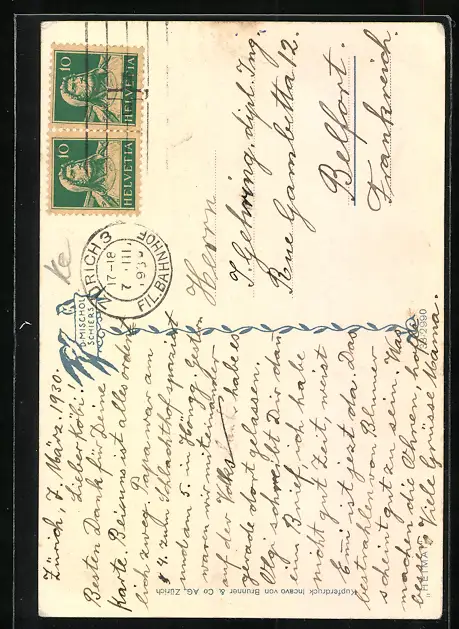 Zürich, 7. März. 1930.
Lieber Köbi!
Besten Dank für Deine
Karte. Bei uns ist alles ordent-
lich zweg. Papa war am
4. zum Schlachthof spaziert
und am 5. in Höngg. Gestern
waren wir miteinander
auf der Volks habe es
gerade dort gelassen.
Olgi schreibt Dir dann
ein Brief, ich habe
nicht gut Zeit, weist
Emi ist jetzt da. Das
bestrahlen von Blumer
scheint gut zu sein. Was
machen die Ohren, hoffe
besser. Viele Grüsse Mama.
Herrn
J. Gehring, dipl. Ing.
Rue Gambetta 12.
Belfort.
Frankreich.
10
HELVETIA
10
HELVETIA
ZÜRICH 3
17-18
7. III
FIL. BAHNHOF
SCHIERS
"HEIMAT"
Kupferdruck Incavo von Brunner & Co AG, Zürich